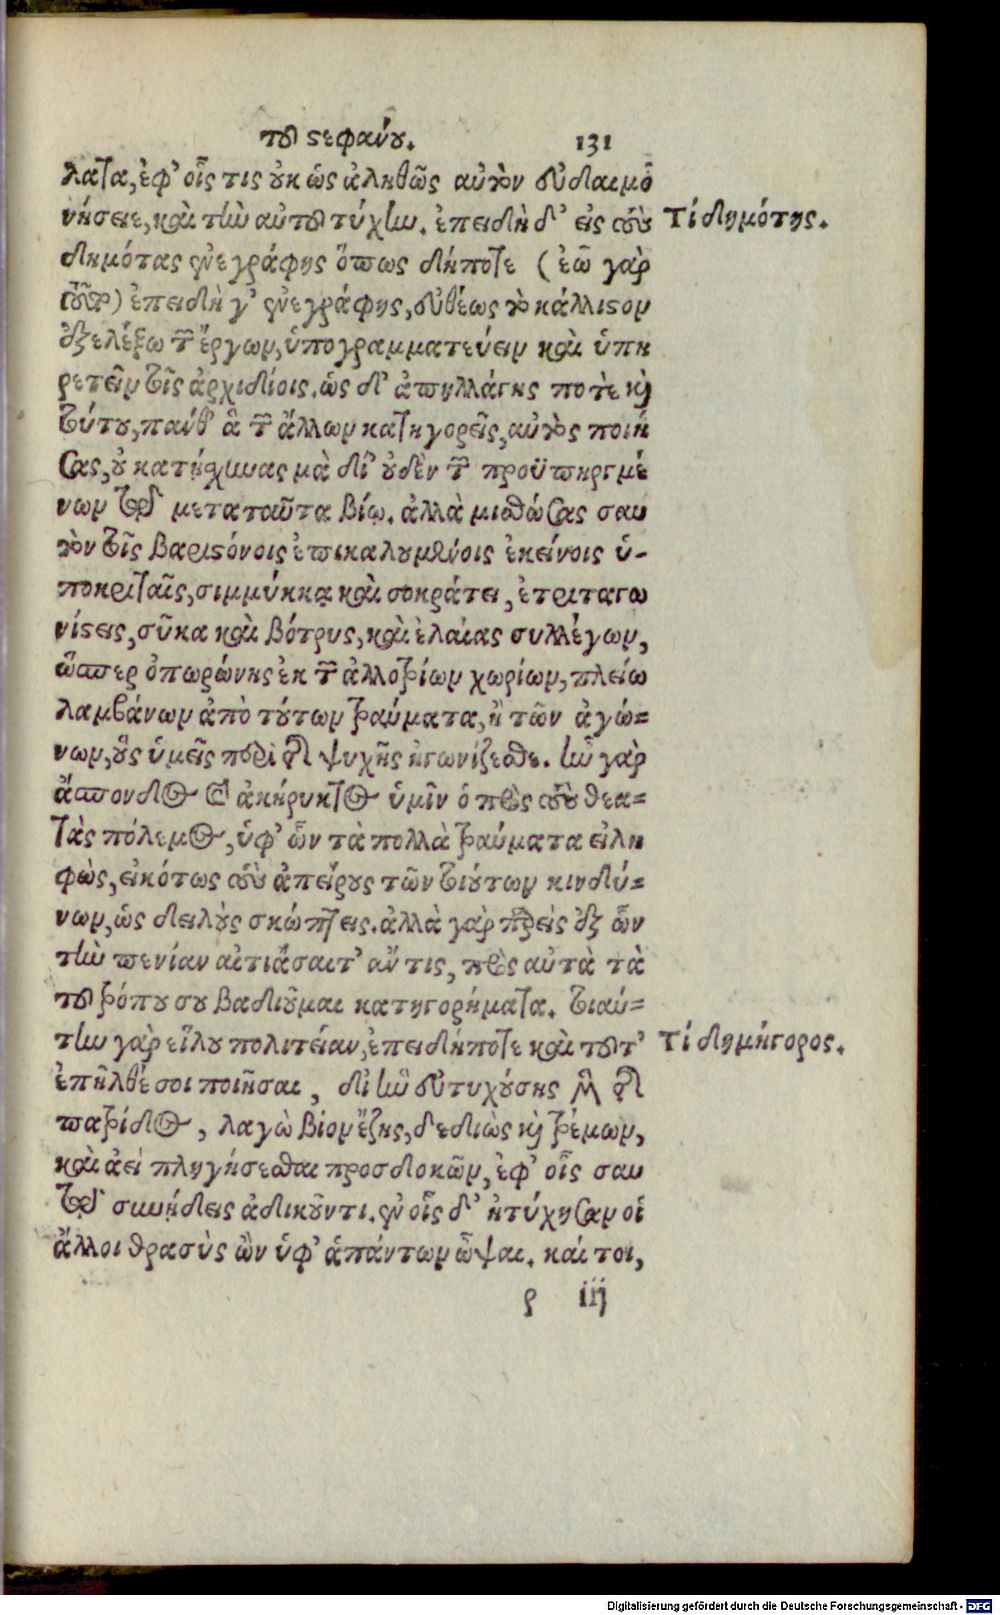 τοῦ στεφάνου. 131
λατα, ἐφ' οἷς τις οὐκ ὡς ἀληθῶς αὐτὸν εὐδαιμο
νήσειε, καὶ τὴν αὐτοῦ τύχην. ἐπειδὴ δ' εἰς τοὺς Τί δημότης.
δημότας ἐνεγράφης ὅπως δήποτε (ἐῶ γὰρ
τοῦτο) ἐπειδή γ' ἐνεγράφης, εὐθέως τὸ κάλλιστον
ἐξελέξω τῶν ἔργων, ὑπογραμματεύειν καὶ ὑπη
ρετεῖν τοῖς ἀρχιδίοις. ὡς δ' ἀπηλλάγης ποτὲ καὶ
τούτου, πάνθ' ἃ τῶν ἄλλων κατηγορεῖς, αὐτὸς ποιή
σας, οὐ κατῄσχυνας μὰ δί' οὐδὲν τῶν προϋπηργμέ
νων τῷ μετα ταῦτα βίῳ. ἀλλὰ μισθώσας σαυ
τὸν τοῖς βαρυστόνοις ἐπικαλουμένοις ἐκείνοις ὑ-
ποκριταῖς, σιμμύκκᾳ καὶ σοκράτει, ἐτριταγω
νίστεις, σῦκα καὶ βότρυς, καὶ ἐλαίας συλλέγων,
ὥσπερ ὀπωρώνης ἐκ τῶν ἀλλοτρίων χωρίων, πλείω
λαμβάνων ἀπὸ τούτων τραύματα, ἢ τῶν ἀγώ=
νων, οὓς ὑμεῖς περὶ τῆς ψυχῆς ἠγωνίζεσθε. ἦν γὰρ
ἄσπονδος καὶ ἀκήρυκτος ὑμῖν ὁ πρὸς τοὺς θεα=
τὰς πόλεμος, ὑφ' ὧν τὰ πολλὰ τραύματα εἰλη
φὼς, εἰκότως τοὺς ἀπείρους τῶν τοιούτων κινδύ=
νων, ὡς δειλοὺς σκώπτεις. ἀλλὰ γὰρ παρεὶς ἐξ ὧν
τὴν πενίαν αἰτιάσαιτ' ἄν τις, πρὸς αὐτὰ τὰ
τοῦ τρόπου σου βαδιοῦμαι κατηγορήματα. τοιαύ=
την γὰρ εἵλου πολιτείαν, ἐπειδήποτε καὶ τοῦτ' Τί δημήγορος.
ἐπῆλθέ σοι ποιῆσαι, δι' ἣν εὐτυχούσης μὲν τῆς
πατρίδος, λαγὼ βίον ἔζης, δεδιὼς καὶ τρέμων,
καὶ ἀεὶ πληγήσεσθαι προσδοκῶν, ἐφ' οἷς σαυ
τῷ συνῄδεις ἀδικοῦντι. ἐν οἷς δ' ἠτύχησαν οἱ
ἄλλοι θρασὺς ὢν ὑφ' ἁπάντων ὦψαι. καί τοι,
ρ iij
Digitalisierung gefördert durch die Deutsche Forschungsgemeinschaft - DFG